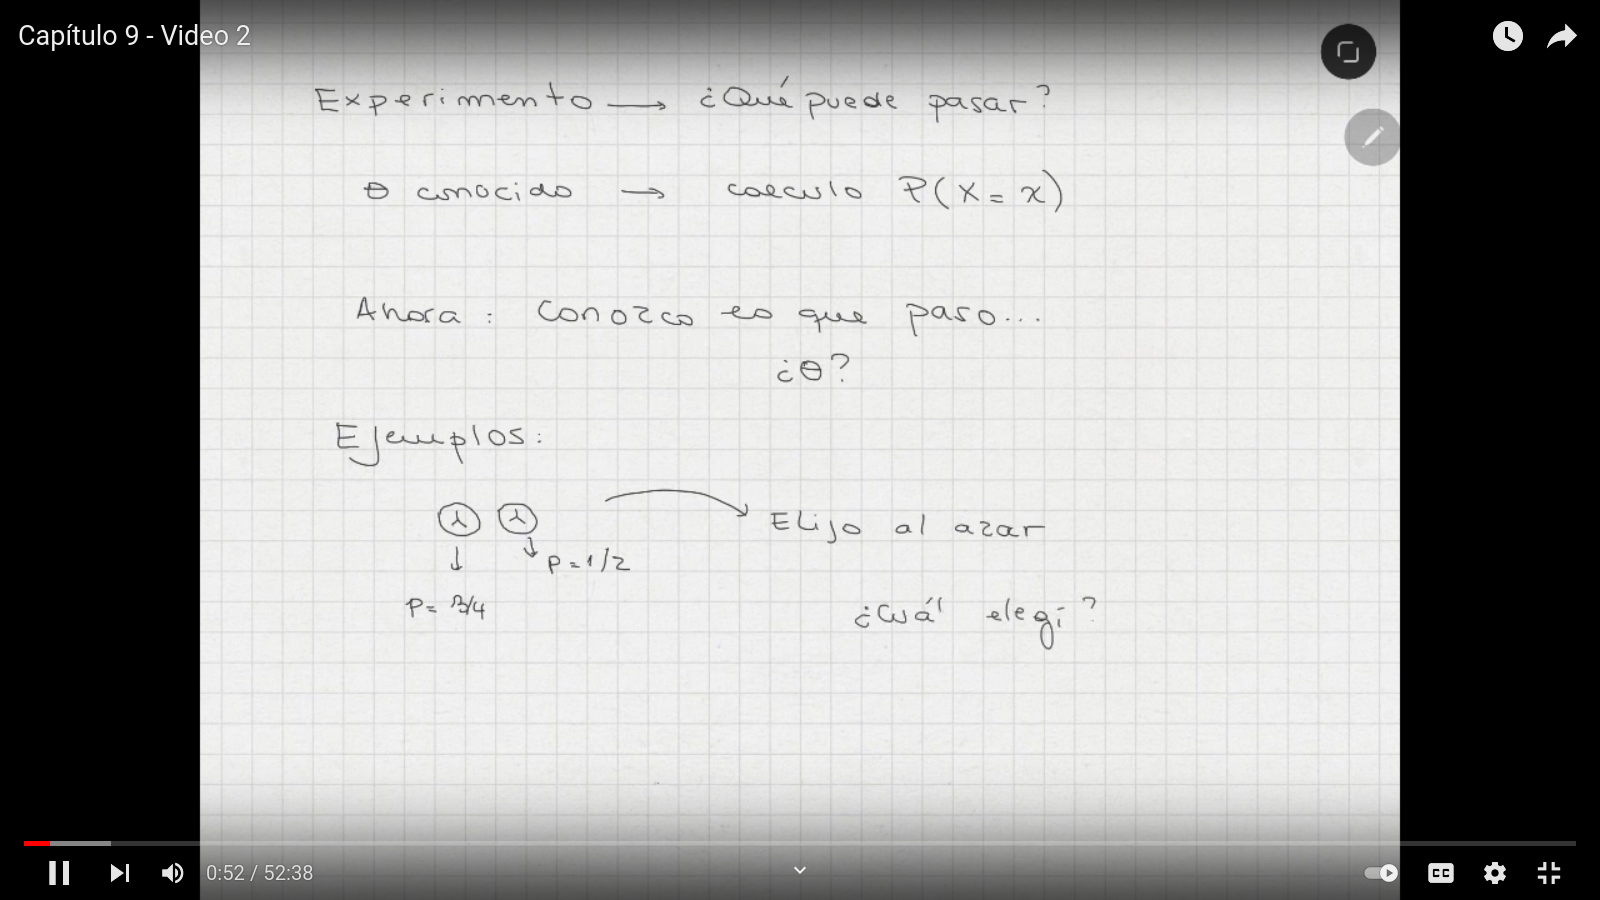 Capítulo 9 - Video 2
Experimento → ¿Qué puede pasar?
θ conocido → calculo P(X = x)
Ahora: conozco lo que paso...
¿θ?
Ejemplos:
Elijo al azar
P = 1/2
P = 3/4
¿Cuál elegí?
0:52 / 52:38
CC